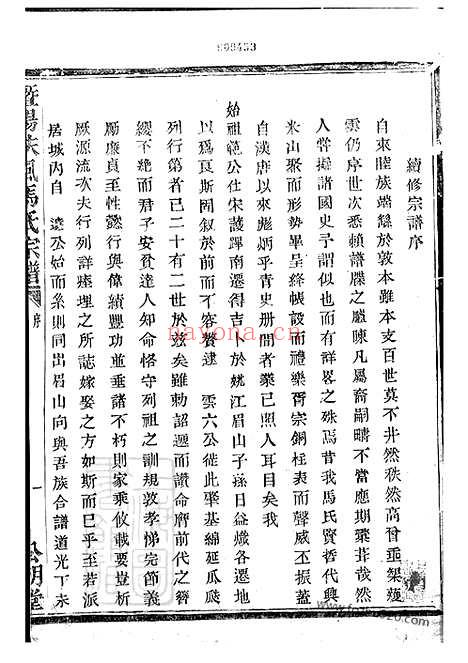 999453
續修宗譜序
自來睦族端繇於敦本雖本支百世莫不井然秩然高曾垂榘矱
雲仍序世次悉賴譜牒之臚陳凡屬裔嗣疇不當應期蒐葺哉然
人嘗擬諸國史予謂似而有詳畧之殊焉昔我馬氏賢哲代興
米山聚而形勢畢呈絳帳設而禮樂胥宗銅柱表而聲威丕振蓋
自漢唐以來彪炳乎青史册間者業已照人耳目矣我
始祖範公仕宋護蹕南遷得吉卜於姚江眉山子孫日益熾各遷地
以爲良斯固敘於前而不容贅逮 雲六公徙此聚基綿延瓜瓞
列行第者已二十有二世於茲矣雖勅詔遞而讃命膺前代之簪
纓不絶而君子安貧達人知命恪守列祖之訓規敦孝悌完節義
勵廉貞至性懿行與偉績豐功並垂諸不朽則家乘攸載要豈析
厥源流次夫行列詳瘞理之所誌嫁娶之方如斯而已乎至若派
居城內自 逵公始而系則同出眉山向與吾族合譜道光丁未
暨陽扶風馬氏宗譜
序
一
公明堂
nayona.cn
nayona.cn